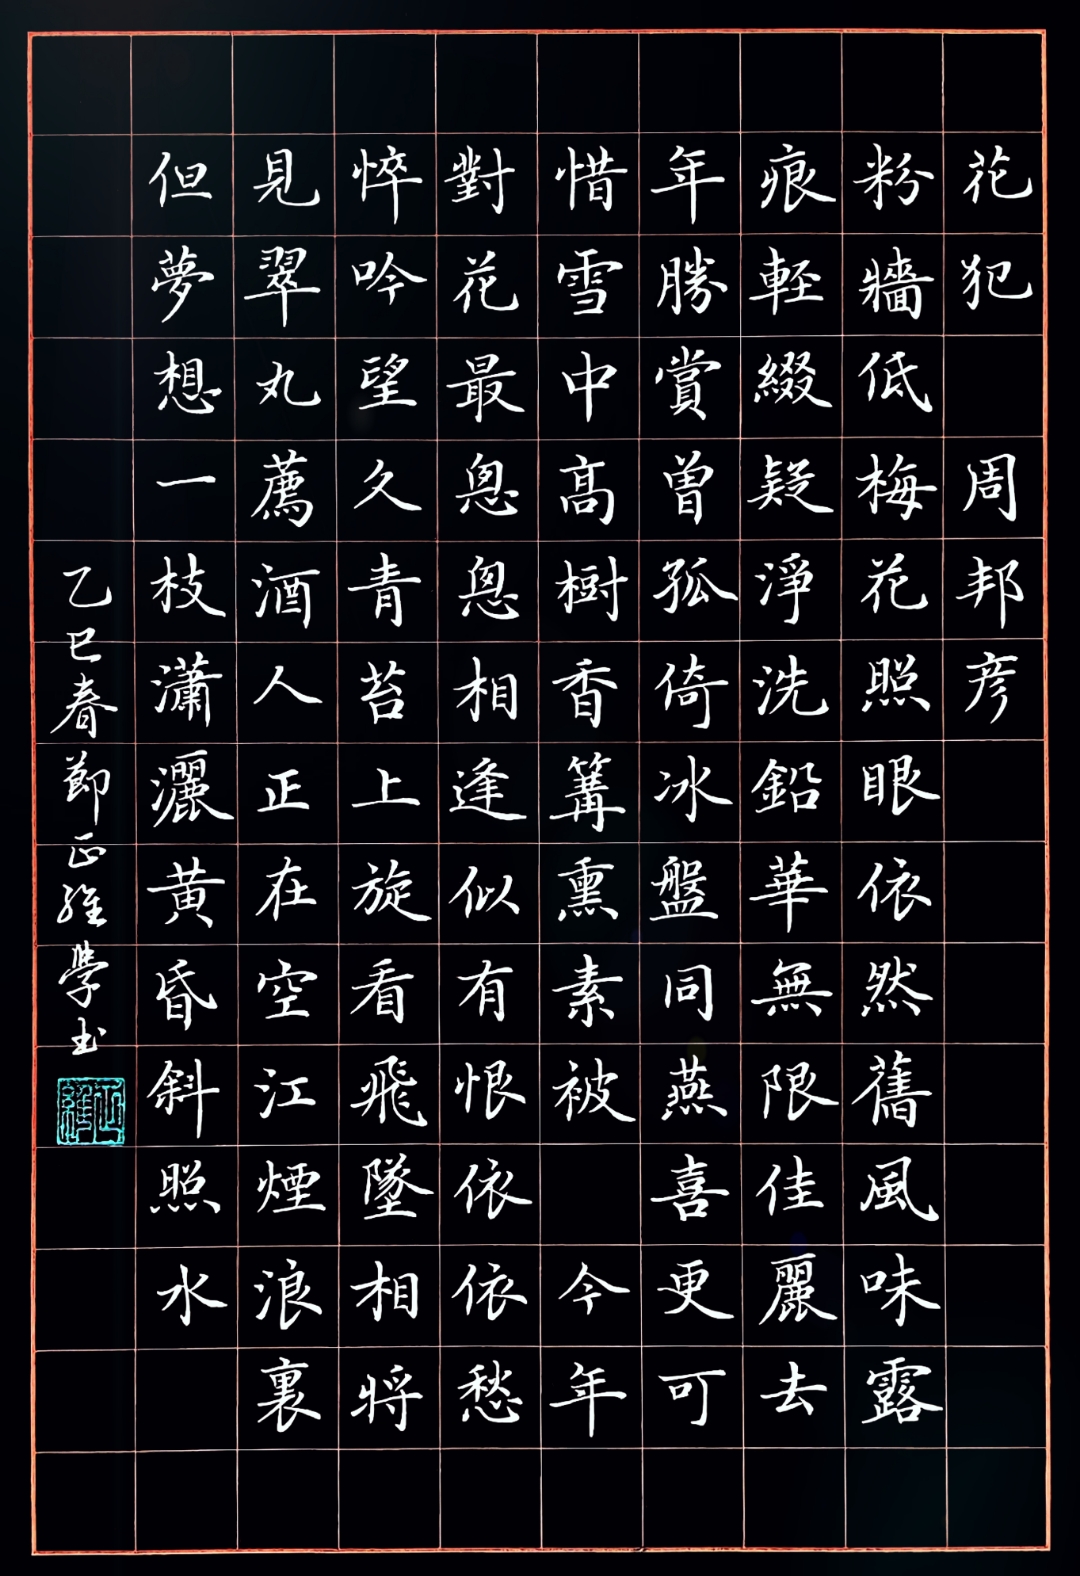 花犯 周邦彦
粉牆低梅花照眼依然舊風味露
痕輕綴疑淨洗鉛華無限佳麗去
年勝賞曾孤倚冰盤同燕喜更可
惜雪中高樹香篝熏素被 今年
對花最悤悤相逢似有恨依依愁
悴吟望久青苔上旋看飛墜相將
見翠丸薦酒人正在空江煙浪裏
但夢想一枝瀟灑黄昏斜照水
乙巳春節正維學書
正維